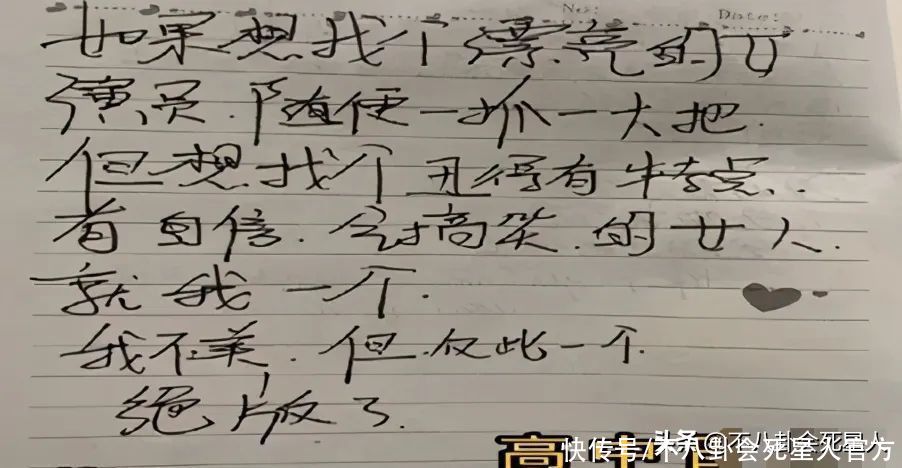 No: Date:
如果想找个漂亮的女
演员.随便一抓一大把.
但想找个丑得有特点.
有自信.会搞笑.的女人.
就我一个.
我不美.但仅此一个.
绝版了
头条@不八卦会死星人
快传号/不八卦会死星人官方